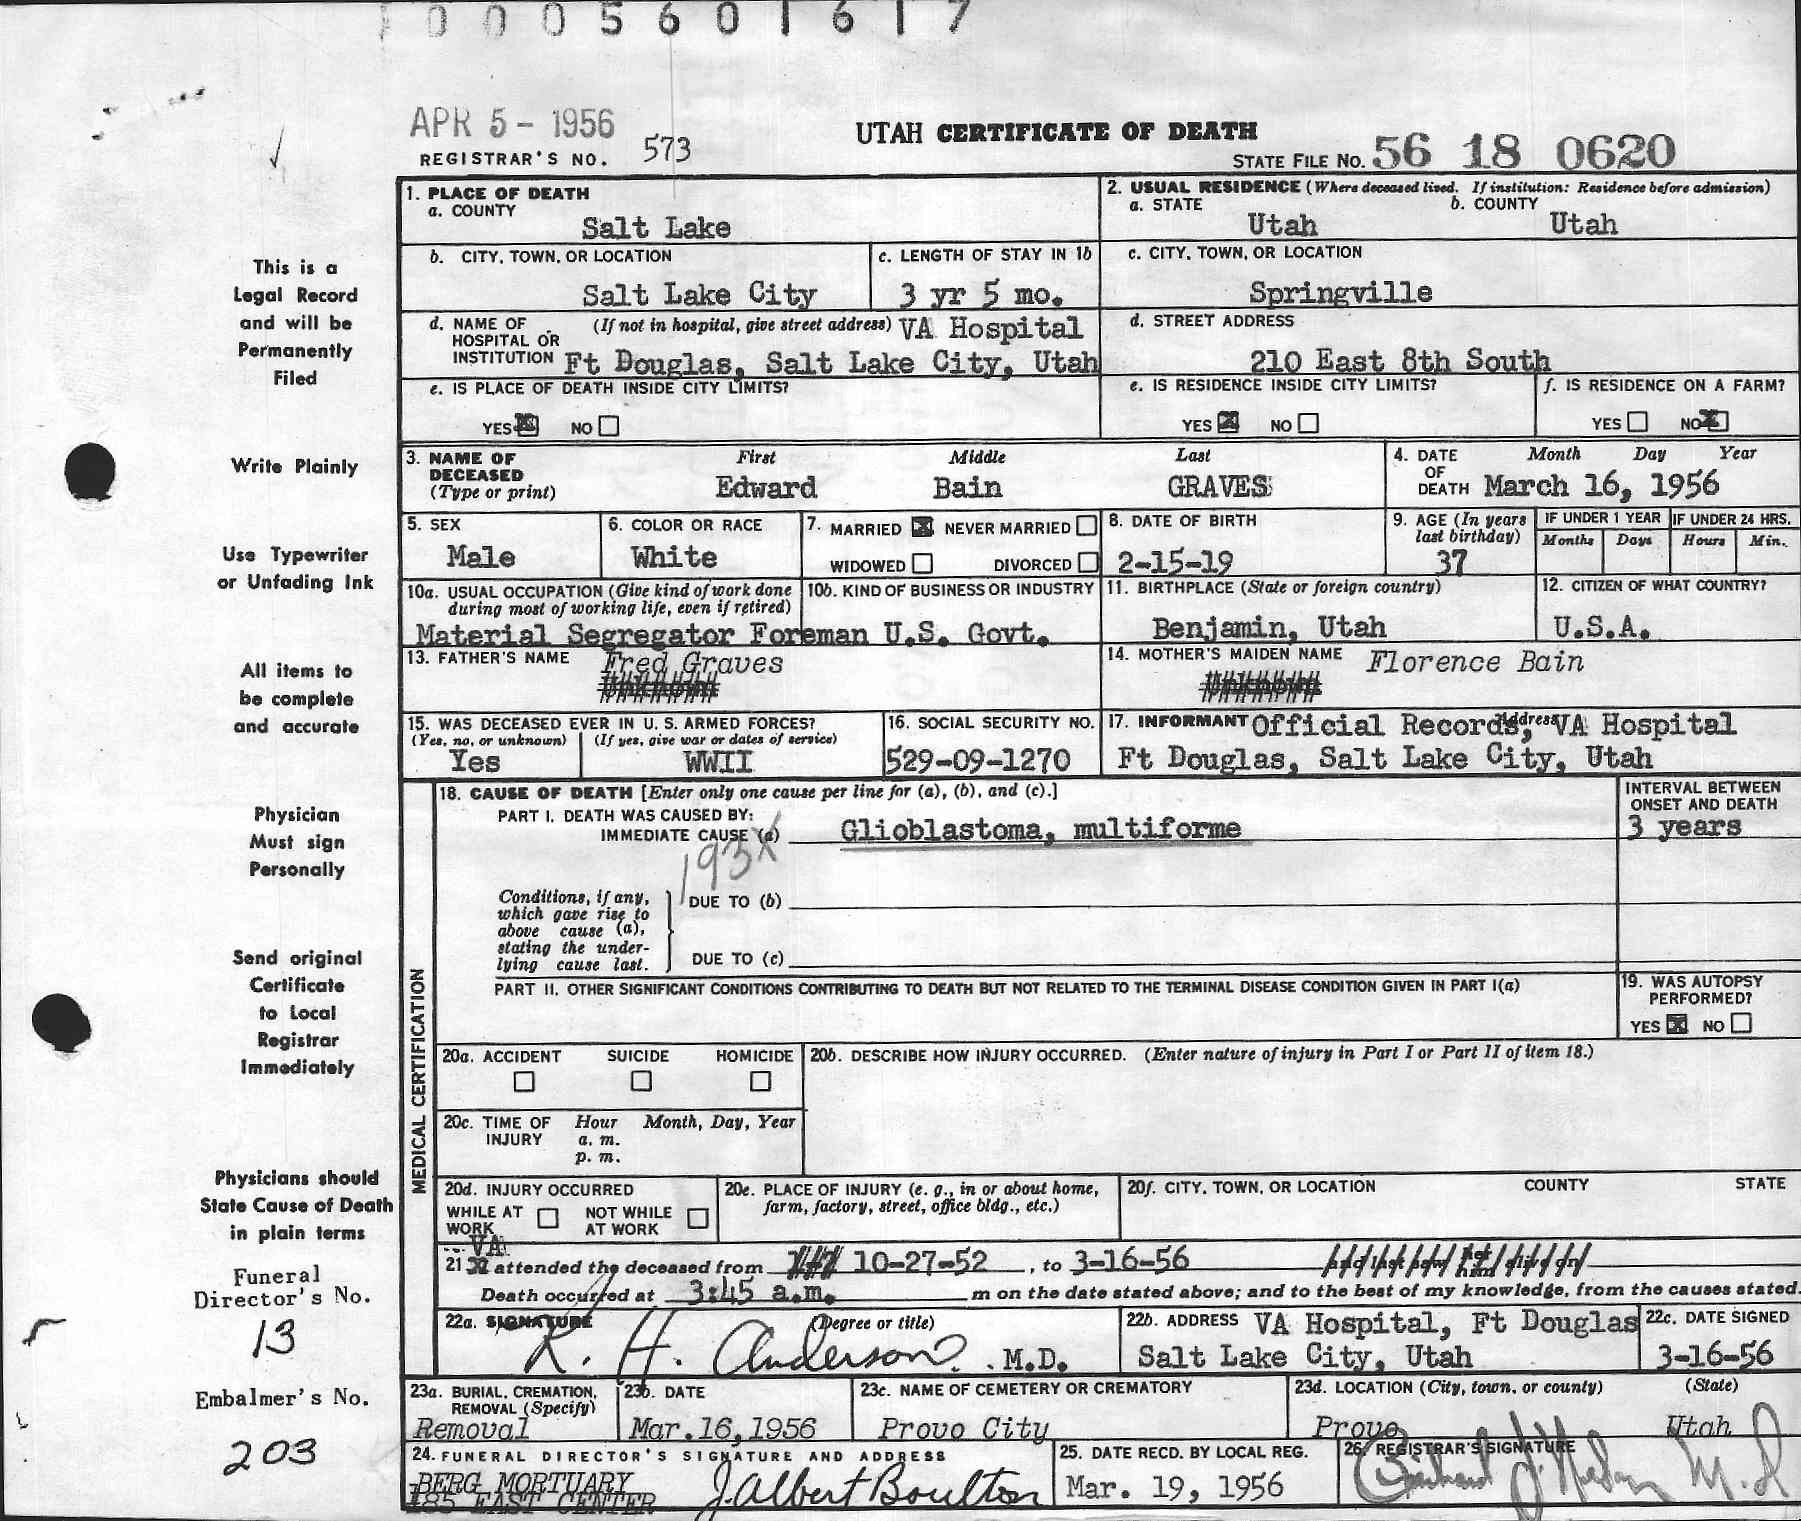 0005601617
APR 5 - 1956
REGISTRAR'S NO. 573
UTAH CERTIFICATE OF DEATH
STATE FILE NO. 56 18 0620
This is a
Legal Record
and will be
Permanently
Filed
Write Plainly
Use Typewriter
or Unfading Ink
All items to
be complete
and accurate
Physician
Must sign
Personally
Send original
Certificate
to Local
Registrar
Immediately
Physicians should
State Cause of Death
in plain terms
Funeral
Director's No.
13
Embalmer's No.
203
1. PLACE OF DEATH
a. COUNTY
Salt Lake
2. USUAL RESIDENCE (Where deceased lived. If institution: Residence before admission)
a. STATE b. COUNTY
Utah Utah
b. CITY, TOWN, OR LOCATION
Salt Lake City
c. LENGTH OF STAY IN 1b
3 yr 5 mo.
c. CITY, TOWN, OR LOCATION
Springville
d. NAME OF (If not in hospital, give street address) VA Hospital
HOSPITAL OR
INSTITUTION Ft Douglas, Salt Lake City, Utah
d. STREET ADDRESS
210 East 8th South
e. IS PLACE OF DEATH INSIDE CITY LIMITS?
YES NO
e. IS RESIDENCE INSIDE CITY LIMITS?
YES NO
f. IS RESIDENCE ON A FARM?
YES NO
3. NAME OF DECEASED (Type or print)
First Middle Last
Edward Bain GRAVES
4. DATE OF DEATH
Month Day Year
March 16, 1956
5. SEX
Male
6. COLOR OR RACE
White
7. MARRIED NEVER MARRIED
WIDOWED DIVORCED
8. DATE OF BIRTH
2-15-19
9. AGE (In years last birthday)
37
IF UNDER 1 YEAR IF UNDER 24 HRS.
Months Days Hours Min.
10a. USUAL OCCUPATION (Give kind of work done
during most of working life, even if retired)
10b. KIND OF BUSINESS OR INDUSTRY
Material Segregator Foreman U.S. Govt.
11. BIRTHPLACE (State or foreign country)
Benjamin, Utah
12. CITIZEN OF WHAT COUNTRY?
U.S.A.
13. FATHER'S NAME Fred Graves
Unknown
14. MOTHER'S MAIDEN NAME Florence Bain
Unknown
15. WAS DECEASED EVER IN U. S. ARMED FORCES?
(Yes, no, or unknown) (If yes, give war or dates of service)
Yes WWII
16. SOCIAL SECURITY NO.
529-09-1270
17. INFORMANT Official Records, Address VA Hospital
Ft Douglas, Salt Lake City, Utah
MEDICAL CERTIFICATION
18. CAUSE OF DEATH [Enter only one cause per line for (a), (b), and (c).]
INTERVAL BETWEEN
ONSET AND DEATH
PART I. DEATH WAS CAUSED BY:
IMMEDIATE CAUSE (a) Glioblastoma, multiforme 3 years
193X
Conditions, if any,
which gave rise to
above cause (a),
stating the under-
lying cause last.
DUE TO (b)
DUE TO (c)
PART II. OTHER SIGNIFICANT CONDITIONS CONTRIBUTING TO DEATH BUT NOT RELATED TO THE TERMINAL DISEASE CONDITION GIVEN IN PART I(a)
19. WAS AUTOPSY
PERFORMED?
YES NO
20a. ACCIDENT SUICIDE HOMICIDE
20b. DESCRIBE HOW INJURY OCCURRED. (Enter nature of injury in Part I or Part II of item 18.)
20c. TIME OF INJURY
Hour Month, Day, Year
a. m.
p. m.
20d. INJURY OCCURRED
WHILE AT WORK NOT WHILE AT WORK
20e. PLACE OF INJURY (e. g., in or about home,
farm, factory, street, office bldg., etc.)
20f. CITY, TOWN, OR LOCATION COUNTY STATE
VA
21. attended the deceased from 10-27-52, to 3-16-56 and last saw her him alive on
Death occurred at 3:45 a.m. m on the date stated above; and to the best of my knowledge, from the causes stated.
22a. SIGNATURE (Degree or title)
R. H. Anderson. M.D.
22b. ADDRESS VA Hospital, Ft Douglas
Salt Lake City, Utah
22c. DATE SIGNED
3-16-56
23a. BURIAL, CREMATION,
REMOVAL (Specify)
Removal
23b. DATE
Mar. 16, 1956
23c. NAME OF CEMETERY OR CREMATORY
Provo City
23d. LOCATION (City, town, or county) (State)
Provo Utah
24. FUNERAL DIRECTOR'S SIGNATURE AND ADDRESS
BERG MORTUARY
185 EAST CENTER
J. Albert Boulton
25. DATE RECD. BY LOCAL REG.
Mar. 19, 1956
26. REGISTRAR'S SIGNATURE
M.D